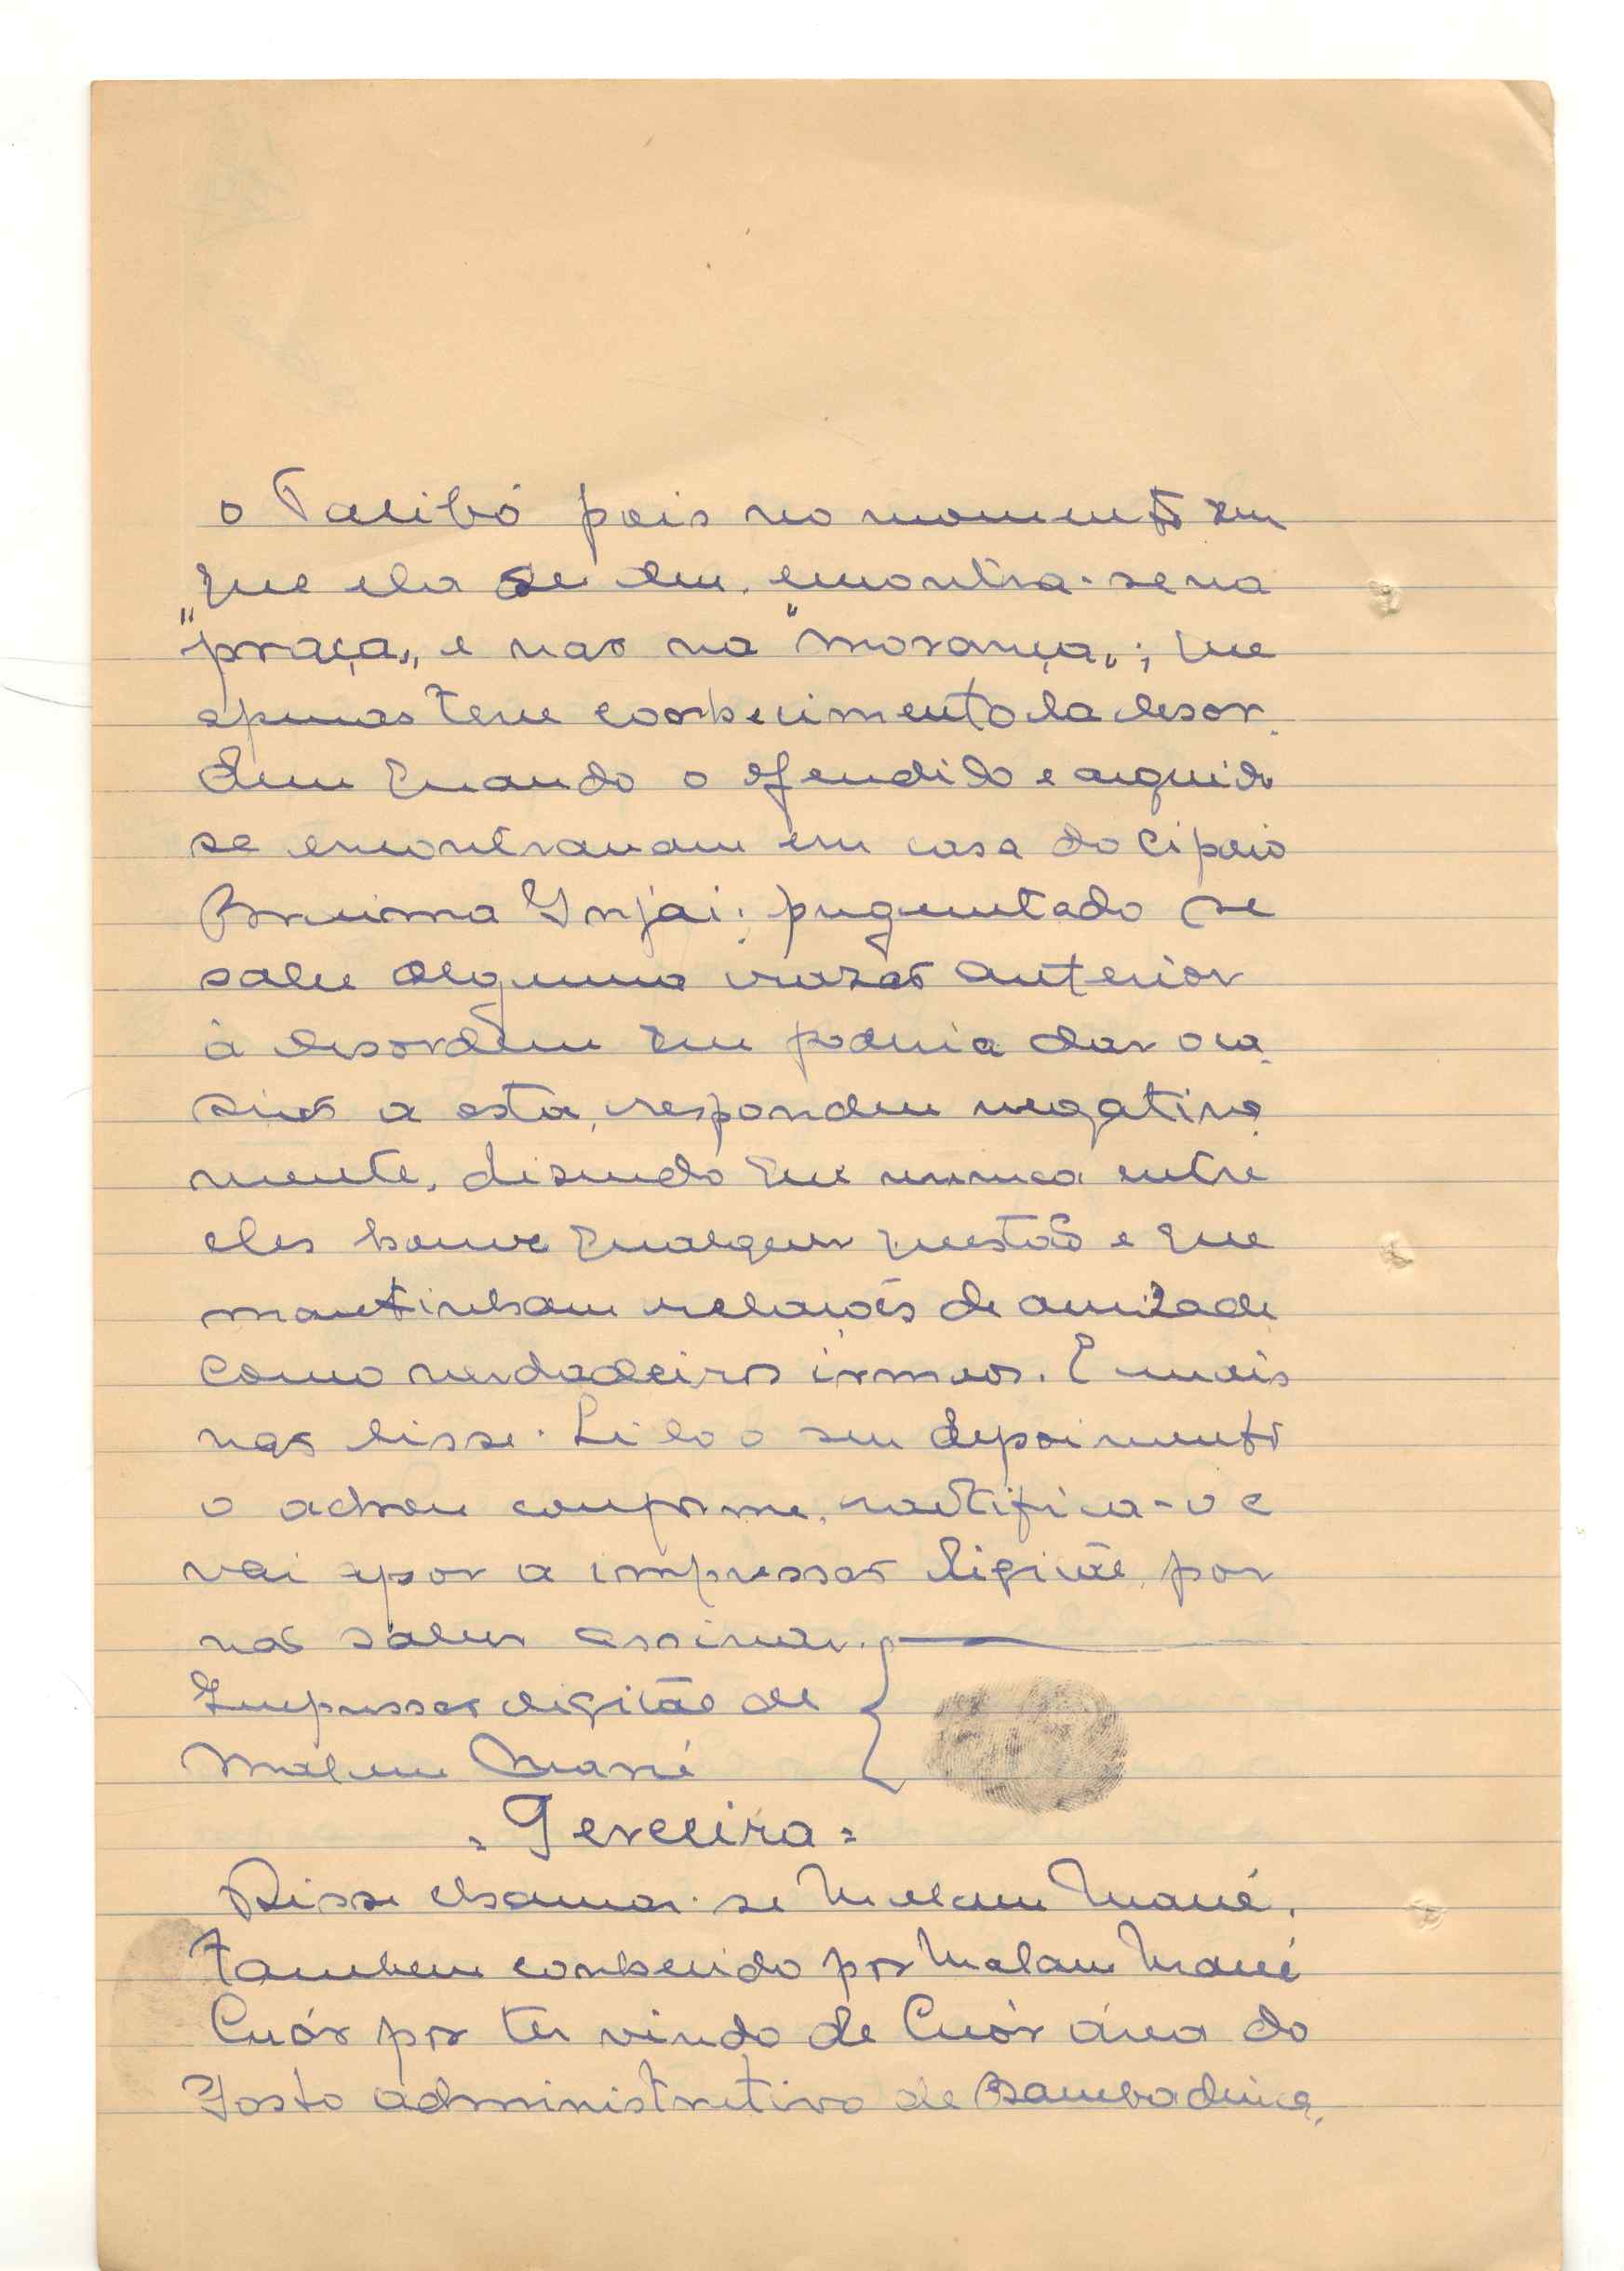 o Talibó pois no momento em
que ela se deu, encontra-se na
"praça„ e nao na "morança„; que
apenas teve conhecimento da desor-
dem quando o ofendido e arguido
se encontravam em casa do cipaio
Braima Injai; preguntado se
sabe alguma razão anterior
à desordem que poderia dar oca-
sião a esta, respondeu negativa-
mente, disendo que nunca entre
eles houve qualquer questão e que
mantinham relações de amizade
como verdadeiros irmaos. E mais
nao disse. Lido o seu depoimento
o achou conforme, ractifica-o e
vai apor a impressão digital, por
não saber assinar.
Impressão digital de
Malam Mané
= Terceira =
Disse chamar-se Malam Mané,
tambem conhecido por Malam Mané
Cuór por ter vindo de Cuór área do
Posto administrativo de Bambadinca,